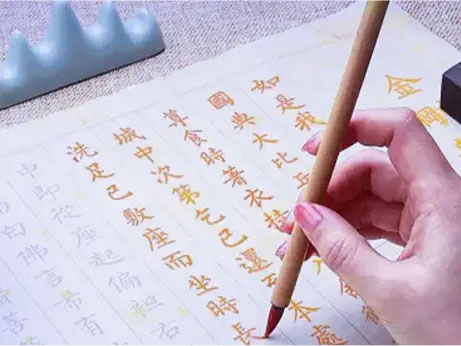 金剛
如是我
國與大比丘
尊食時著衣持
城中次第乞已還至本處
洗足已敷座而坐時長
中即從座起偏袒右
白佛言希有
善